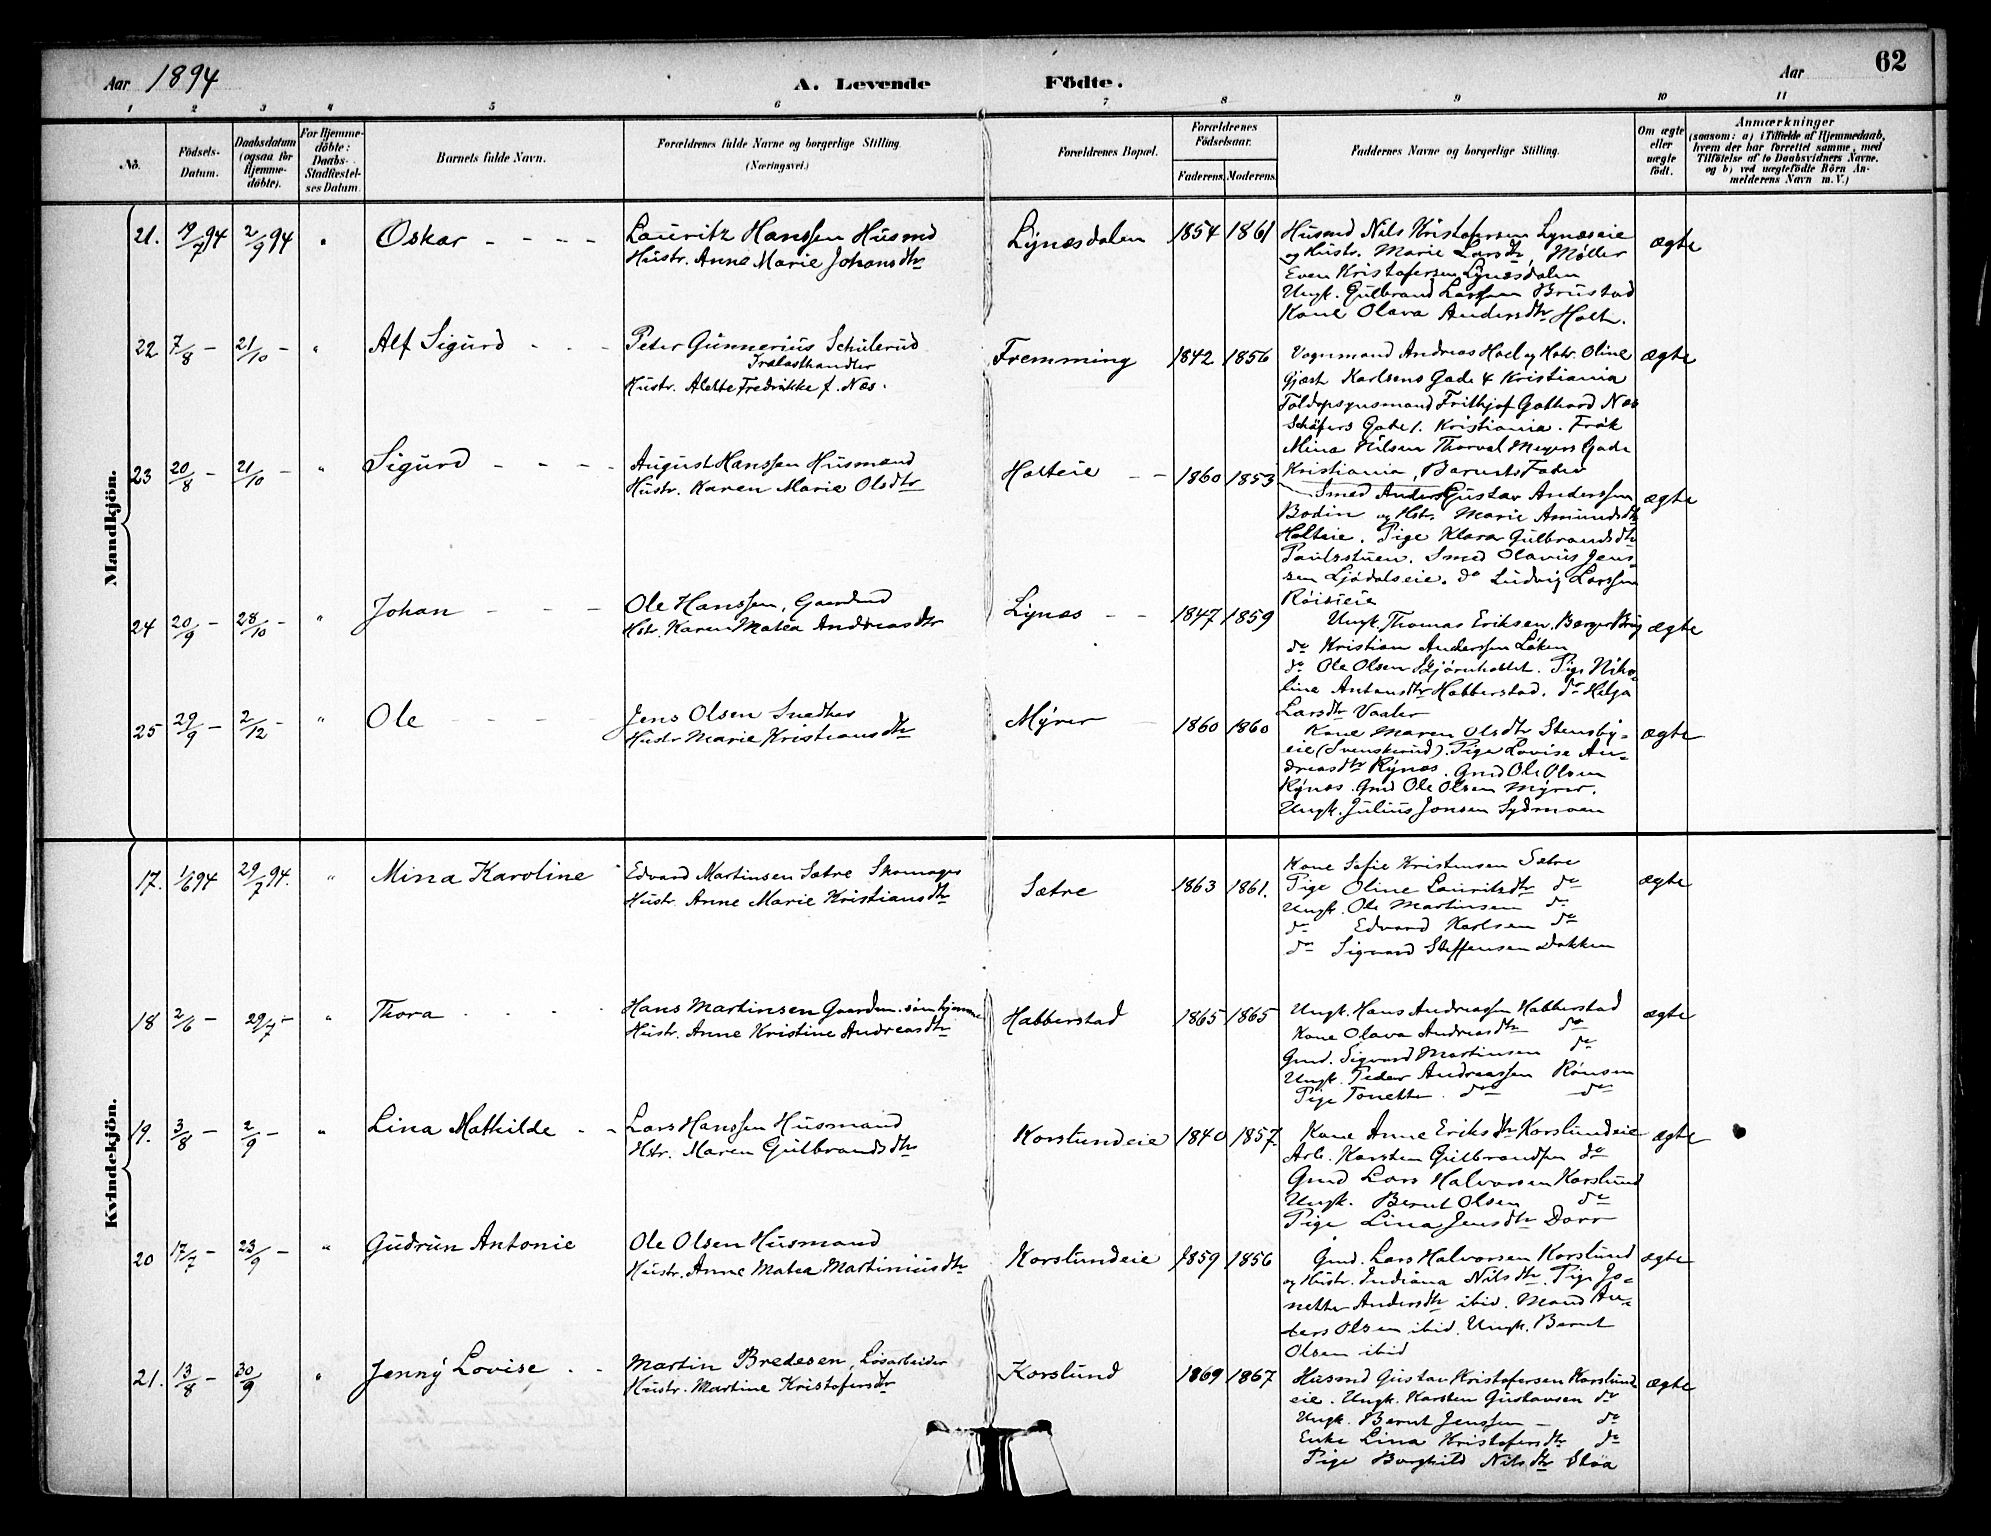 Aar 1894
A. Levende Födte.
Aar
62
1 2 3 4 5 6 7 8 9 10 11
No.
Födsels-Datum.
Daabsdatum (ogsaa for Hjemmedöbte).
For Hjemmedöbte: Daabs-Stadfæstelses Datum.
Barnets fulde Navn.
Forældrenes fulde Navne og borgerlige Stilling. (Næringsvei.)
Forældrenes Bopæl.
Forældrenes Födselsaar.
Faderens. Moderens.
Faddernes Navne og borgerlige Stilling.
Om ægte eller uægte födt.
Anmærkninger
(saasom: a) i Tilfælde af Hjemmedaab, hvem der har forrettet samme, med Tilföielse af to Daabsvidners Navne, og b) ved uægtefödte Börn Anmelderens Navn m. V.)
Mandkjön.
21. 17/7 94 2/9 94 " Oskar - - - -
Lauritz Hanssen Husmd
Hustr. Anne Marie Johansdtr
Lynæsdalen 1854 1861
Husmd Nils Kristofersen Lynæseie
og Hustr. Marie Larsdtr, Møller
Even Kristofersen Lynæsdalen
Ungk. Gulbrand Larssen Brustad
Kone Olava Andersdtr Holt.
ægte
22 7/8 - 21/10 - " Alf Sigurd - - -
Peter Gunnerius Schulerud
Trælasthandler
Hustr. Alette Fredrikke f. Næs.
Fremming 1842 1856
Vognmand Andreas Hoel og Hstr. Oline
Gjæst Karlsens Gade 4 Kristiania
Toldopsynsmand Frithjof Gothard Næs
Schäfers Gade 1. Kristiania. Frøk
Mina Nilsen Thorval Meyers Gade
Kristiania, Barnets Fader
ægte
23 20/8 - 21/10 - " Sigurd - - - -
August Hanssen Husmand
Hustr. Karen Marie Olsdtr
Holteie - - 1860 1853
Smed Anders Gustav Anderssen
Bodin og Hstr. Marie Amundsdtr
Holteie. Pige Klara Gulbrandsdtr
Paulsstuen. Smed Olavus Jens-
sen Ljødalseie. do Ludvig Larssen
Røiseie
ægte
24 20/9 - 28/10 - " Johan - - -
Ole Hanssen, Gaardmd
Hstr. Karen Matea Andreasdtr
Lynæs - - 1847 1859
Ungk. Thomas Eriksen. Berger
do Kristian Anderssen Løken
do Ole Olsen Pige Niko-
line Antonsdtr Habberstad. do Helga
Larsdtr Vaaler
ægte
25 29/9 - 2/12 - " Ole - - - -
Jens Olsen Snedker
Hustr Marie Kristiansdtr
Myrer - 1860 1860
Kone Maren Olsdtr Stensby-
eie (Svenskerud). Pige Lovise An-
dreasdtr Rynæs. Gmd Ole Olsen
Rynæs. Gmd Ole Olsen Myrer.
Ungk. Julius Jonsen Sydmoen
ægte
Kvindekjön.
17. 1/6 94 29/7 94. " Mina Karoline
Edvard Martinsen Sætre Skomager
Hustr. Anne Marie Kristiansdtr
Sætre 1863 1861.
Kone Sofie Kristensen Sætre
Pige Oline Lauritsdtr do
Ungk. Ole Martinsen do
do Edvard Karlsen do
do Sigvard Steffensen Dokken
ægte
18 2/6 - 29/7 - " Thora - - - -
Hans Martinsen Gaardm. søn hjemme
Hustr. Anne Kristine Andreasdtr
Habberstad 1865 1865
Ungk. Hans Andreassen Habberstad
Kone Olava Andreasdtr do
Gmd. Sigvard Martinsen do
Ungk. Peder Andreassen Rønsen
Pige Tonette do do
ægte
19. 3/8 - 2/9 - " Lina Mathilde - -
Lars Hanssen Husmand
Hstr. Maren Gulbrandsdtr
Korslundeie 1840 1857.
Kone Anne Eriksdtr Korslundeie
Arb. Karsten Gulbrandsen do
Gmd Lars Halvorsen Korslund
Ungk. Bernt Olsen do
Pige Lina Jensdtr Dorr
ægte
20 17/7 - 23/9 - " Gudrun Antonie
Ole Olsen Husmand
Hustr. Anne Matea Martiniusdtr
Korslundeie 1859 1856
Gmd. Lars Halvorsen Korslund
og Hustr. Indiana Nilsdtr. Pige Jo-
nette Andersdtr ibid. Mand An-
ders Olsen ibid. Ungk. Bernt
Olsen ibid
ægte
21. 13/8 - 30/9 " Jenny Lovise - -
Martin Bredesen, Løsarbeider
Hustr. Martine Kristofersdtr
Korslund 1869 1867
Husmd Gustav Kristofersen Korslund-
eie. Ungk. Karsten Gustavsen do
Ungk. Bernt Jenssen - do
Enke Lina Kristofersdtr do
Pige Borghild Nilsdtr
ægte